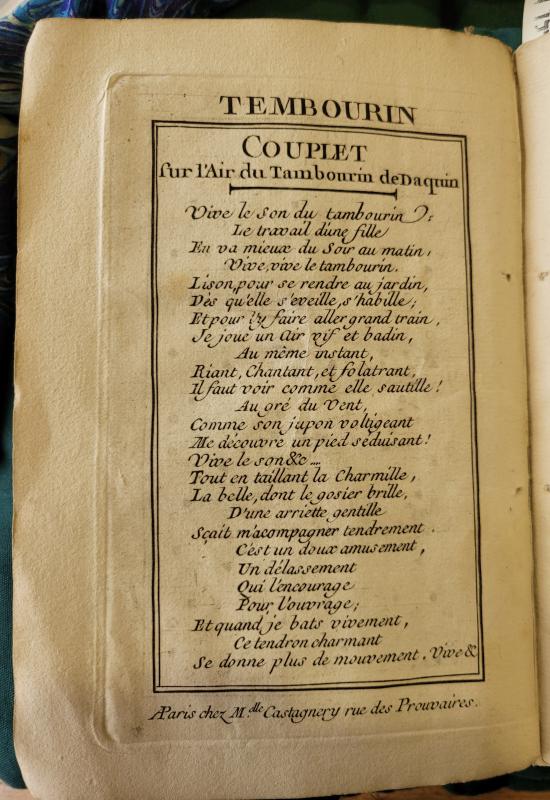 TEMBOURIN
COUPLET
sur l'Air du Tambourin de Daquin
Vive le son du tambourin :
Le travail d'une fille
En va mieux du soir au matin,
Vive, vive le tambourin.
Lison, pour se rendre au jardin,
Dès qu'elle s'eveille, s'habille;
Et pour l'y faire aller grand train,
Je joue un air vif et badin,
Au même instant,
Riant, Chantant, et folatrant,
Il faut voir comme elle sautille!
Au gré du Vent,
Comme son jupon voltigeant
Me découvre un pied séduisant!
Vive le son &c....
Tout en taillant la Charmille,
La belle, dont le gosier brille,
D'une arriette gentille
Sçait m'acompagner tendrement.
C'est un doux amusement,
Un délassement
Qui l'encourage
Pour l'ouvrage;
Et quand je bats vivement,
Ce tendron charmant
Se donne plus de mouvement. Vive &
A Paris chez M.elle Castagnery rue des Prouvaires.